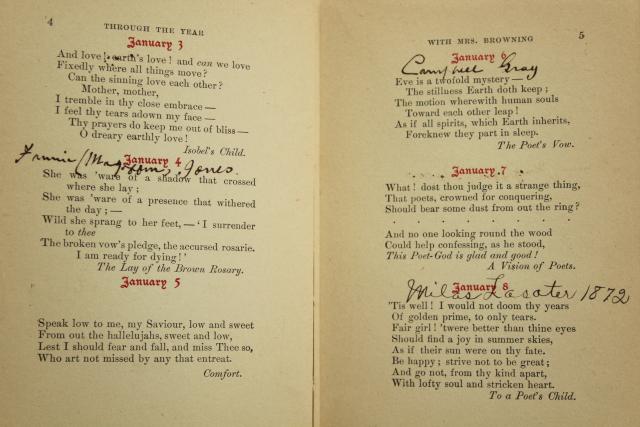 4
THROUGH THE YEAR
January 3
And love! earth's love! and can we love
Fixedly where all things move?
Can the sinning love each other?
Mother, mother,
I tremble in thy close embrace—
I feel thy tears adown my face—
Thy prayers do keep me out of bliss—
O dreary earthly love!
Isobel's Child.
January 4
Jones
She was 'ware of a shadow that crossed
where she lay;
She was 'ware of a presence that withered
the day;—
Wild she sprang to her feet,—'I surrender
to thee
The broken vow's pledge, the accursed rosarie.
I am ready for dying!'
The Lay of the Brown Rosary.
January 5
Speak low to me, my Saviour, low and sweet
From out the hallelujahs, sweet and low,
Lest I should fear and fall, and miss Thee so,
Who art not missed by any that entreat.
Comfort.
WITH MRS. BROWNING
5
January 6
Campbell Gray
Eve is a twofold mystery—
The stillness Earth doth keep;
The motion wherewith human souls
Toward each other leap!
As if all spirits, which Earth inherits,
Foreknew they part in sleep.
The Poet's Vow.
January 7
What! dost thou judge it a strange thing,
That poets, crowned for conquering,
Should bear some dust from out the ring?
And no one looking round the wood
Could help confessing, as he stood,
This Poet-God is glad and good!
A Vision of Poets.
January 8
Milas Lasater 1872
'Tis well! I would not doom thy years
Of golden prime, to only tears.
Fair girl! 'twere better than thine eyes
Should find a joy in summer skies,
As if their sun were on thy fate.
Be happy; strive not to be great;
And go not, from thy kind apart,
With lofty soul and stricken heart.
To a Poet's Child.